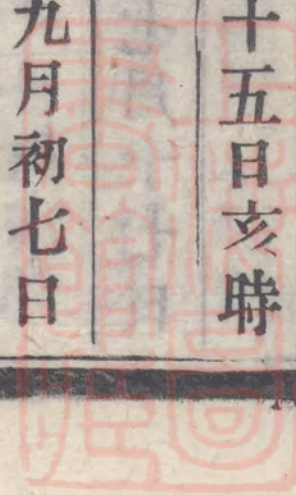 十五日亥時
九月初七日